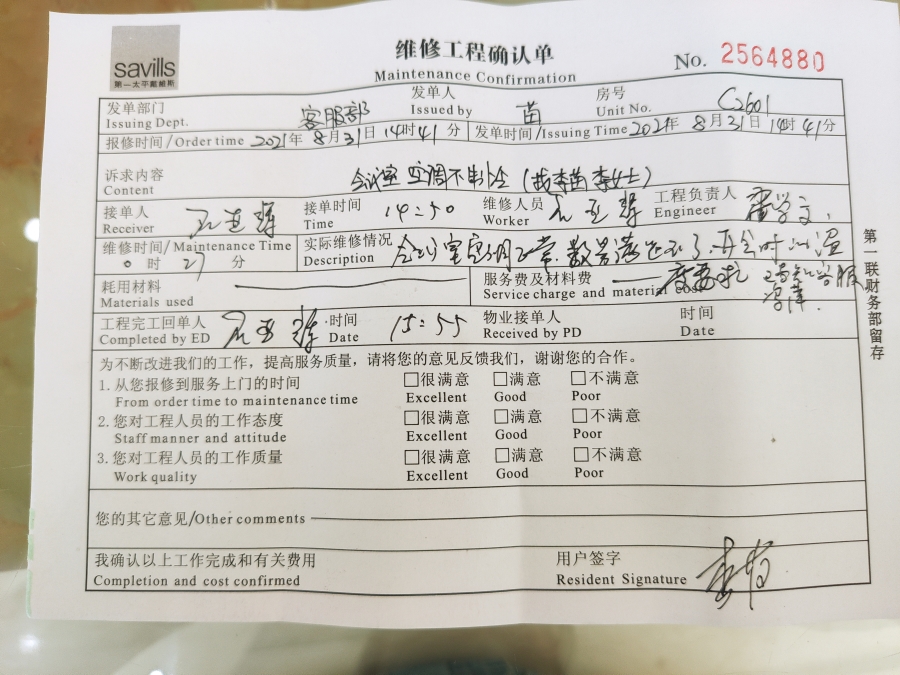 savills
第一太平戴维斯
维修工程确认单
Maintenance Confirmation
No. 2564880
发单部门 客服部 发单人 苗 房号 C2601
Issuing Dept. Issued by Unit No.
报修时间/Order time 2021年8月31日14时41分 发单时间/Issuing Time 2021年8月31日14时41分
诉求内容 会议室空调不制冷(找李苗李女士)
Content
接单人 接单时间 14:50 维修人员 工程负责人
Receiver Time Worker Engineer
维修时间/Maintenance Time 实际维修情况
0时27分 Description
耗用材料 服务费及材料费
Materials used Service charge and material cost
工程完工回单人 时间 15:55 物业接单人 时间
Completed by ED Date Received by PD Date
为不断改进我们的工作,提高服务质量,请将您的意见反馈我们,谢谢您的合作。
1. 从您报修到服务上门的时间 □很满意 □满意 □不满意
From order time to maintenance time Excellent Good Poor
2. 您对工程人员的工作态度 □很满意 □满意 □不满意
Staff manner and attitude Excellent Good Poor
3. 您对工程人员的工作质量 □很满意 □满意 □不满意
Work quality Excellent Good Poor
您的其它意见/Other comments
我确认以上工作完成和有关费用 用户签字 李苗
Completion and cost confirmed Resident Signature
第一联财务部留存